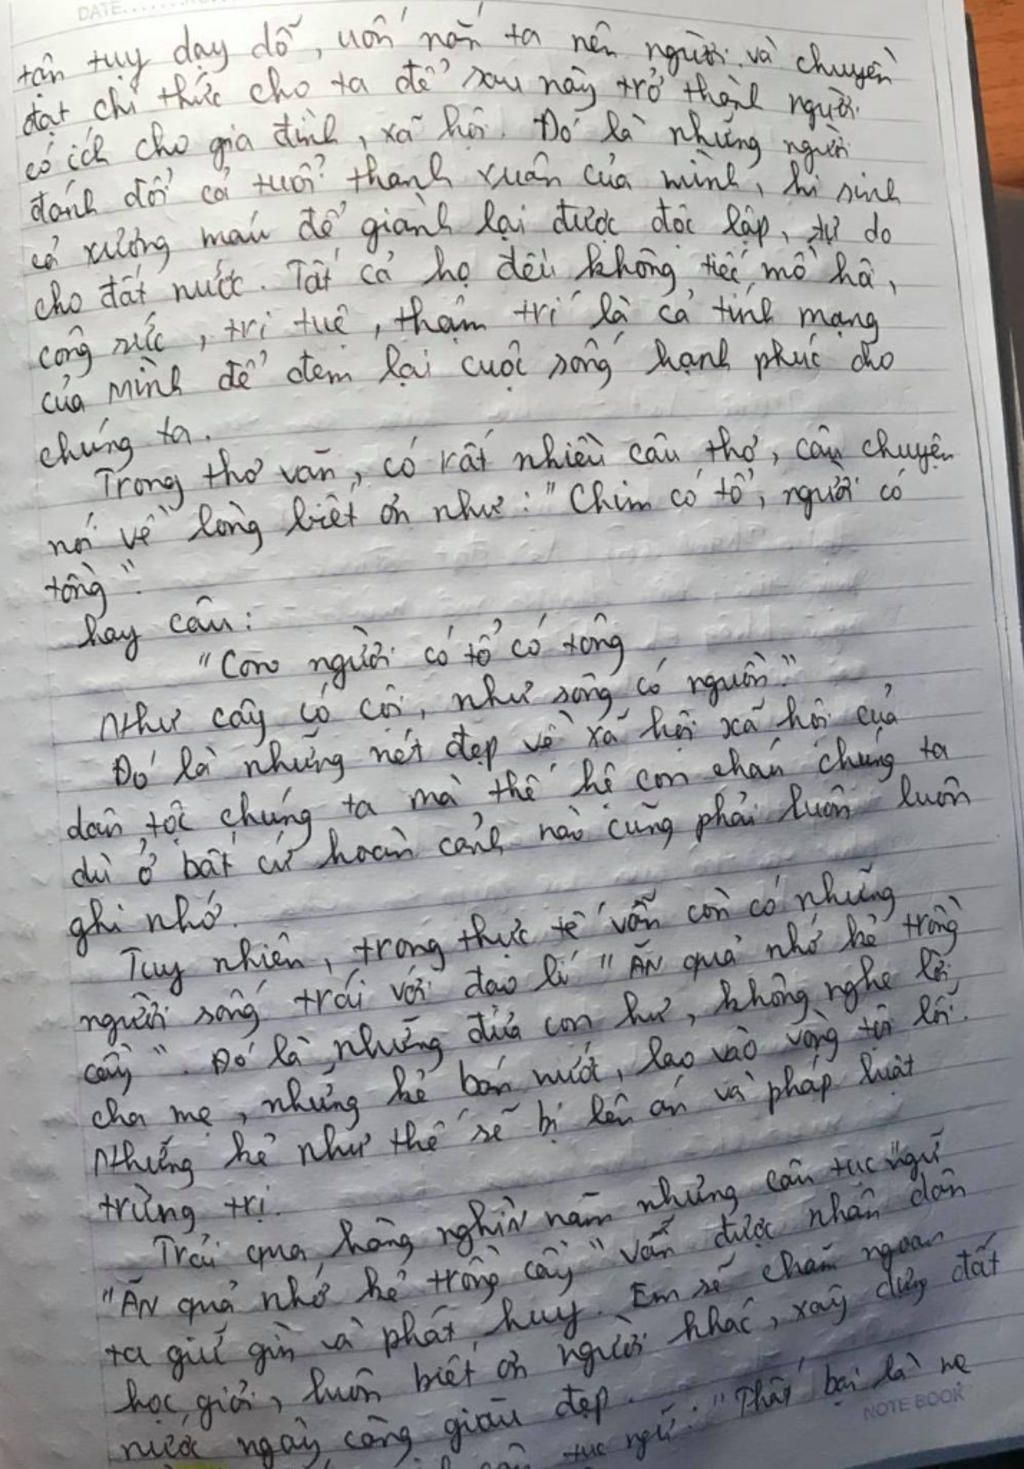 DATE
tận tụy dạy dỗ, uốn nắn ta nên người và chuyền
đạt chi thức cho ta để sau này trở thành người
có ích cho gia đình, xã hội. Đó là những người
đánh đổi cả tuổi thanh xuân của mình, hi sinh
cả xương máu để giành lại được độc lập, tự do
cho đất nước. Tất cả họ đều không tiếc mồ hôi,
công sức, trí tuệ, thậm trí là cả tính mạng
của mình để đem lại cuộc sống hạnh phúc cho
chúng ta.
Trong thơ văn, có rất nhiều câu thơ, câu chuyện
nói về lòng biết ơn như: "Chim có tổ, người có
tông".
hay câu:
"Con người có tổ có tông
Như cây có cội, như sông có nguồn."
Đó là những nét đẹp về xã hội xã hội của
dân tộc chúng ta mà thế hệ con cháu chúng ta
dù ở bất cứ hoàn cảnh nào cũng phải luôn luôn
ghi nhớ.
Tuy nhiên, trong thực tế vẫn còn có những
người sống trái với đạo lí "Ăn quả nhớ kẻ trồng
cây". Đó là những đứa con hư, không nghe lời
cha mẹ, những kẻ bán nước, lao vào vòng tội lỗi.
Những kẻ như thế sẽ bị lên án và pháp luật
trừng trị.
Trải qua hàng nghìn năm những câu tục ngữ
"Ăn quả nhớ kẻ trồng cây" vẫn được nhân dân
ta giữ gìn và phát huy. Em sẽ chăm ngoan
học giỏi, luôn biết ơn người khác, xây dựng đất
nước ngày càng giàu đẹp.
câu tục ngữ: "Thất bại là mẹ
NOTE BOOK